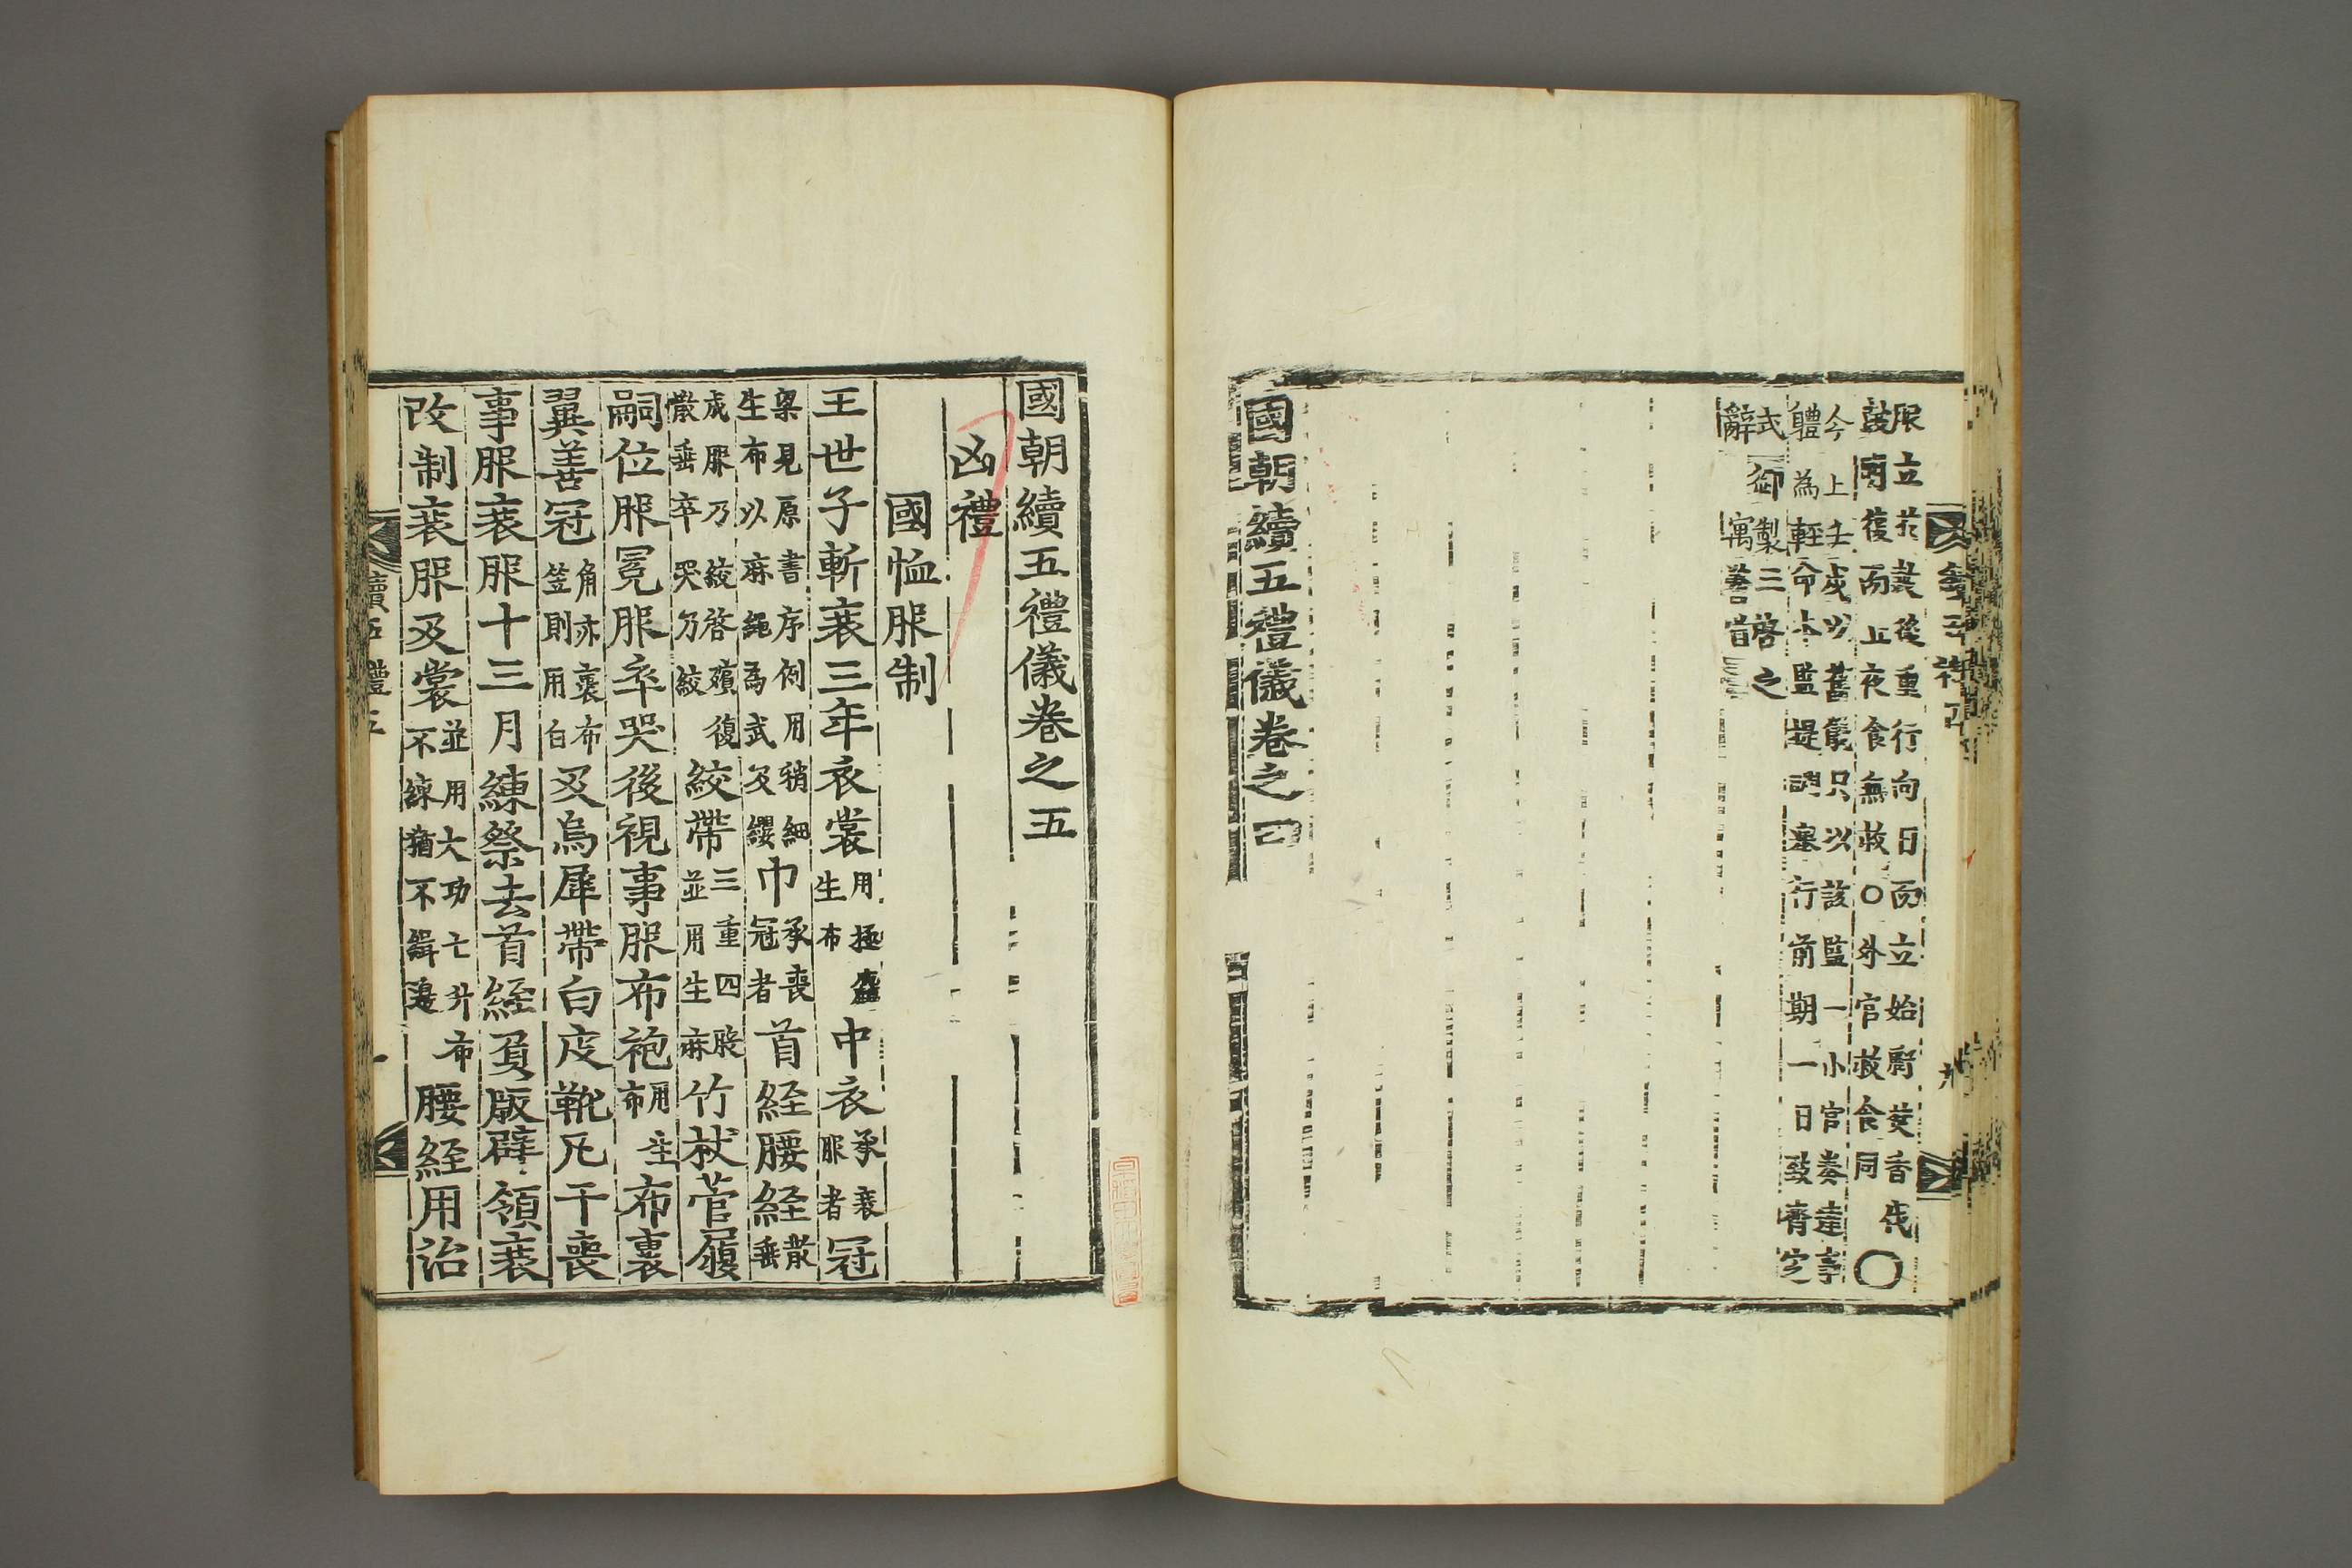 服立於褁後重行向日而立始虧焚香伐
鼓南復而止夜食無救○外官救食同○
今上壬戌以舊儀只以該監一小官奏達事
體為輕命本監提調率行前期一日致齊之
式御製三啓之
辭寓
國朝續五禮儀卷之四
國朝續五禮儀卷之五
凶禮
國恤服制
王世子斬衰三年衣裳用極麤生布中衣承衰服者冠
梁見原書序例用稍細生布以麻繩為武及纓巾承喪冠者首絰腰絰散垂
成服乃絞啓殯復散垂卒哭乃絞絞帶三重四股並用生麻竹杖菅屨
嗣位服冕服卒哭後視事服布袍用生布布裹
翼善冠角亦裹布笠則用白及烏犀帶白皮靴凡干喪
事服衰服十三月練祭去首絰負版辟領衰
改制衰服及裳並用大功七升布不練猶不緝邊腰絰用治
續五禮五